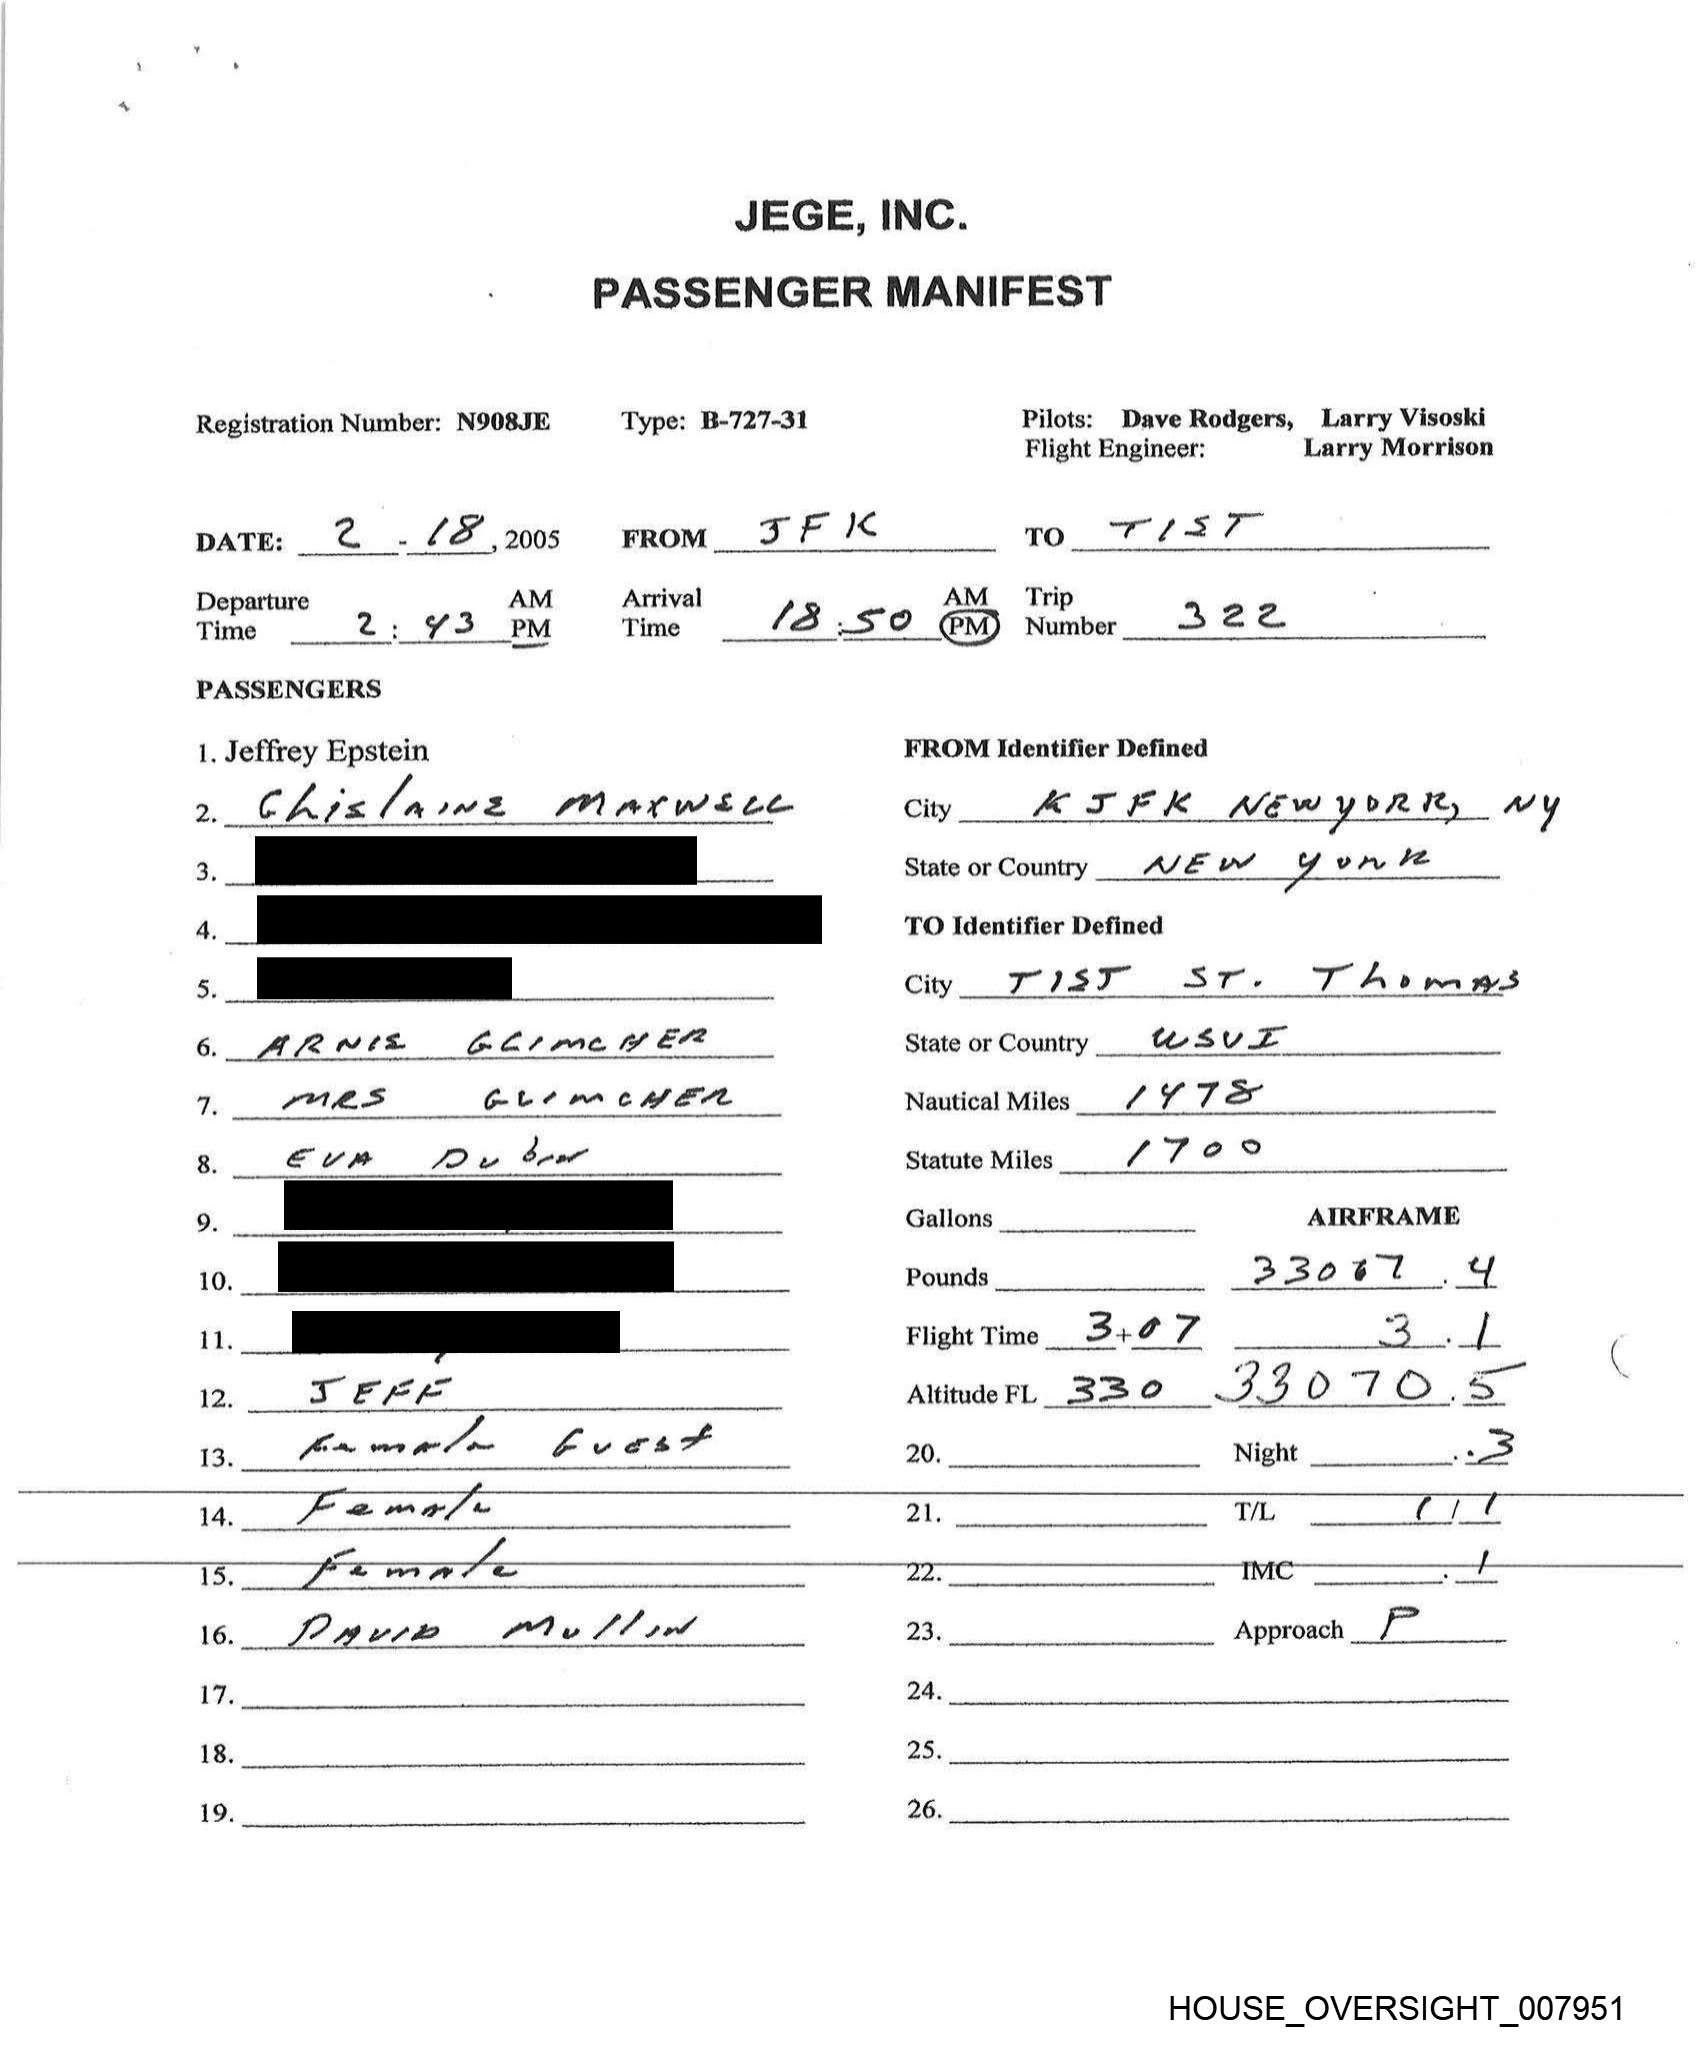 JEGE, INC.
PASSENGER MANIFEST
Registration Number: N908JE Type: B-727-31 Pilots: Dave Rodgers, Larry Visoski
Flight Engineer: Larry Morrison
DATE: 2 - 18, 2005 FROM JFK TO TIST
Departure Time 2:43 AM PM Arrival Time 18:50 AM PM Trip Number 322
PASSENGERS
1. Jeffrey Epstein
2. GhislAINE MAXWELL
3.
4.
5.
6. ARNIE GLIMCHER
7. MRS GLIMCHER
8. EVA Dubin
9.
10.
11.
12. JEFF
13. Female Guest
14. Female
15. Female
16. DAVID Mullin
17.
18.
19.
FROM Identifier Defined
City KJFK NEW YORK, NY
State or Country NEW YORK
TO Identifier Defined
City TIST ST. ThomAS
State or Country USVI
Nautical Miles 1478
Statute Miles 1700
Gallons AIRFRAME
Pounds 33067.4
Flight Time 3+07 3.1
Altitude FL 330 33070.5
20. Night .3
21. T/L 1/1
22. IMC .1
23. Approach P
24.
25.
26.
HOUSE_OVERSIGHT_007951